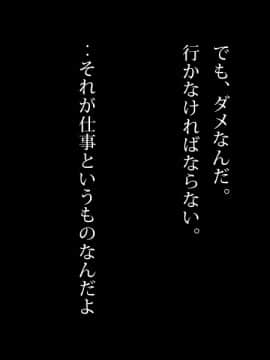 でも、ダメなんだ。
行かなければならない。
‥それが仕事というものなんだよ